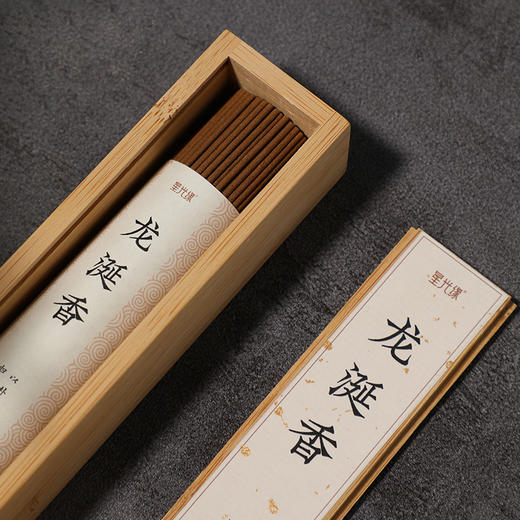 星光缘
龙涎香
星光缘
龙涎香